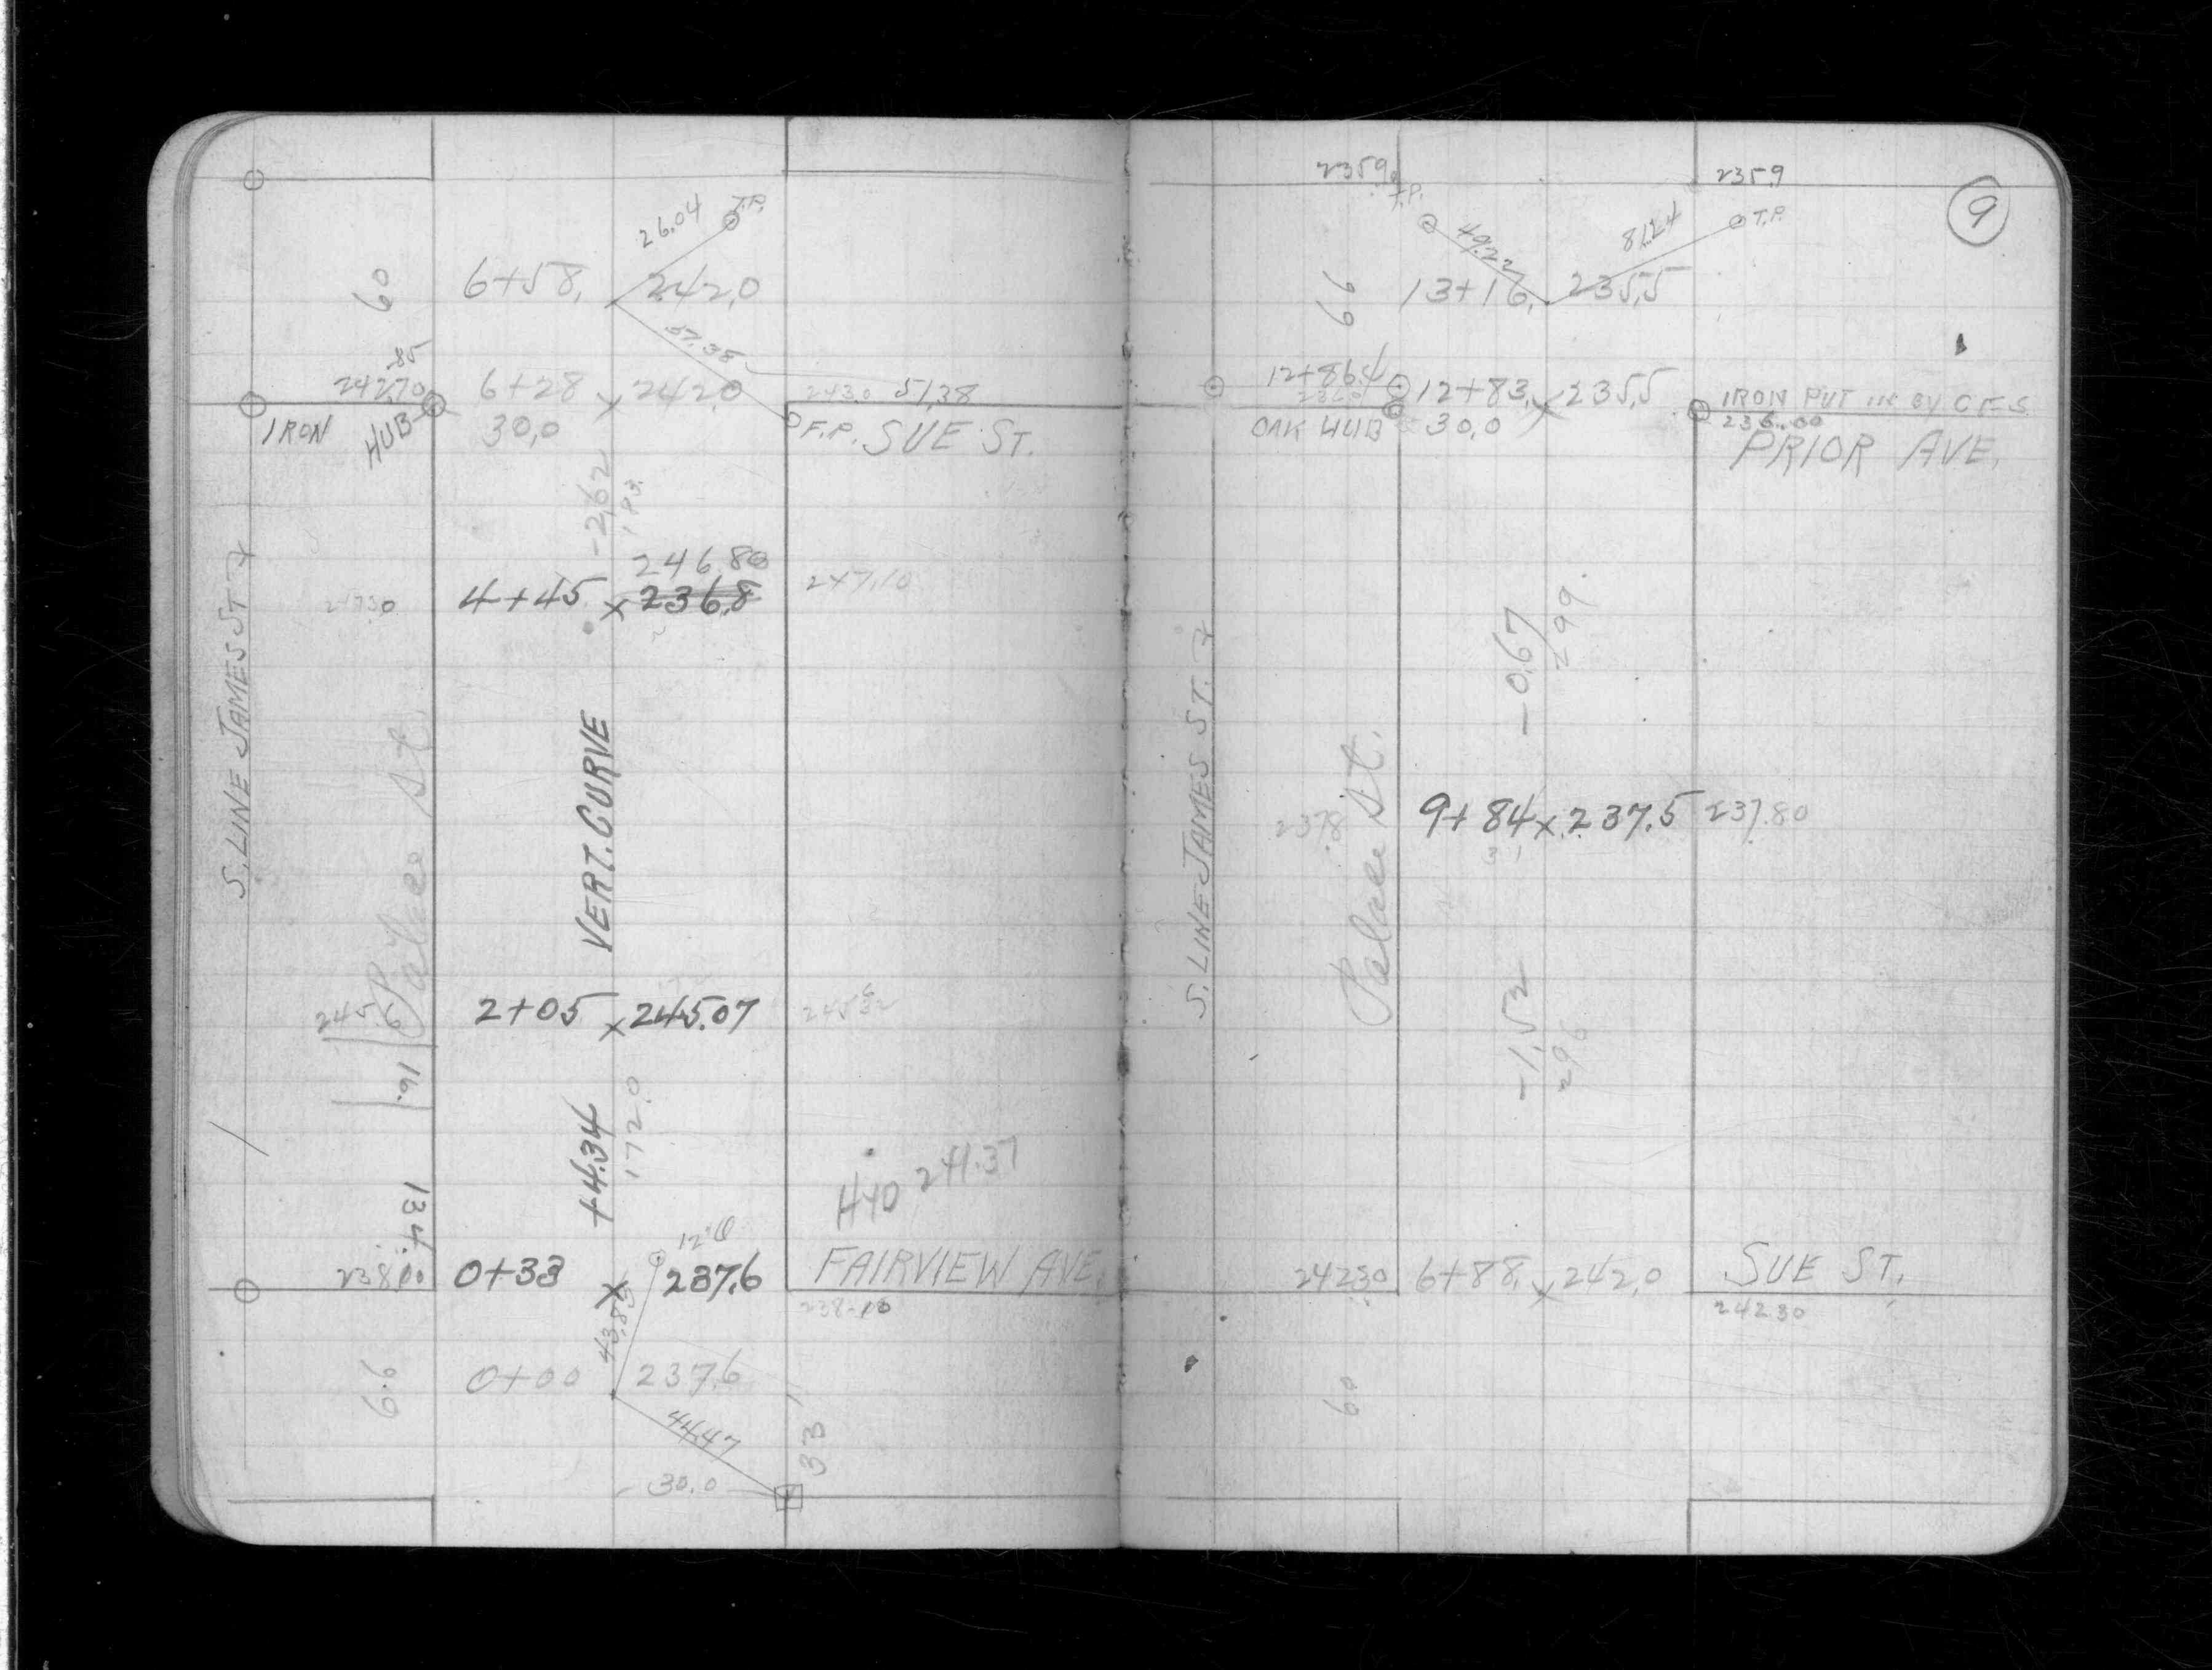 26.04 T.P.
60 6+58. 242.0
57.38
.85
242.70 6+28 x 242.0 243.0 51.38
IRON HUB 30.0 F.P. SUE ST.
-2.62
183.
246.80
4+45 x 236.8 247.10
S. LINE JAMES ST
Palace St.
VERT. CURVE
245.6 2+05 x 245.07
16.
+4.34
172.0
134.
H40 241.37
12.0
238.00 0+33 x 237.6 FAIRVIEW AVE.
238.10
43.83
66 0+00 237.6
44.47
30.0 33
9
235.9 235.9
T.P. T.P.
49.22 81.24
66 13+16. 235.5
12+86.4 12+83. x 235.5 IRON PUT IN BY
236.0 236.00
OAK HUB 30.0 PRIOR AVE.
-0.67
299.
S. LINE JAMES ST.
Palace St.
237.8 9+84 x 237.5 237.80
-1.52
296
242.30 6+88. x 242.0 SUE ST.
242.30
60